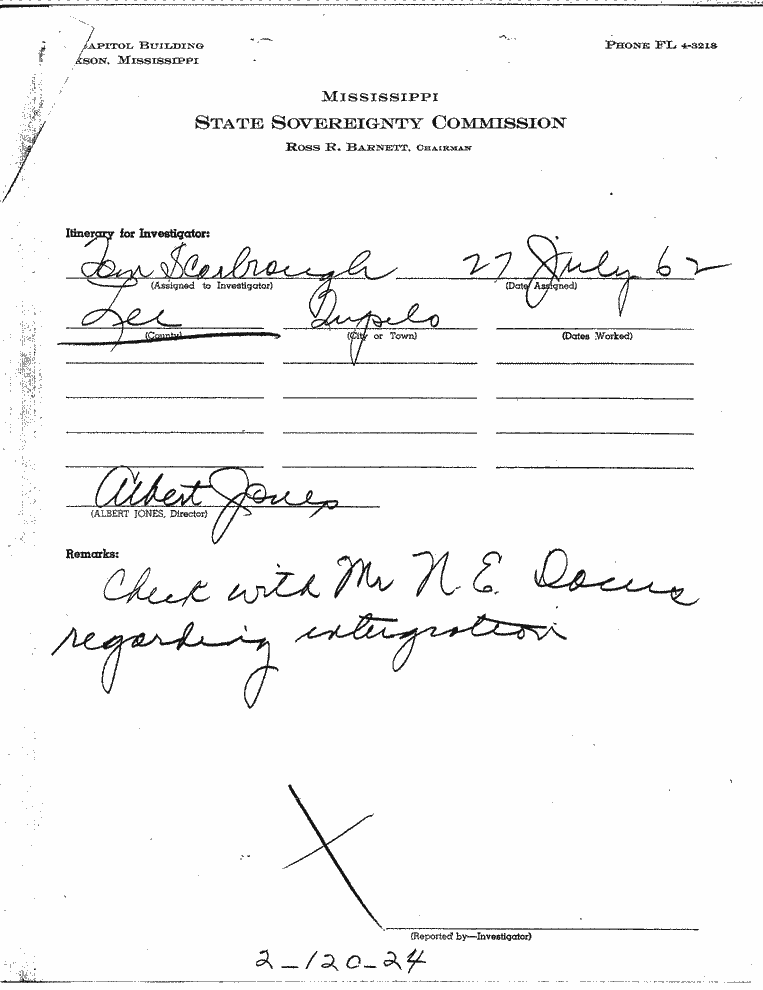 APITOL BUILDING
KSON, MISSISSIPPI
PHONE FL 4-3218
MISSISSIPPI
STATE SOVEREIGNTY COMMISSION
ROSS R. BARNETT, CHAIRMAN
Itinerary for Investigator:
Tom Scarbrough 27 July 62
(Assigned to Investigator) (Date Assigned)
Lee Tupelo
(County) (City or Town) (Dates Worked)
Albert Jones
(ALBERT JONES, Director)
Remarks:
Check with Mr N. E.
regarding intergration
(Reported by—Investigator)
2-120-24